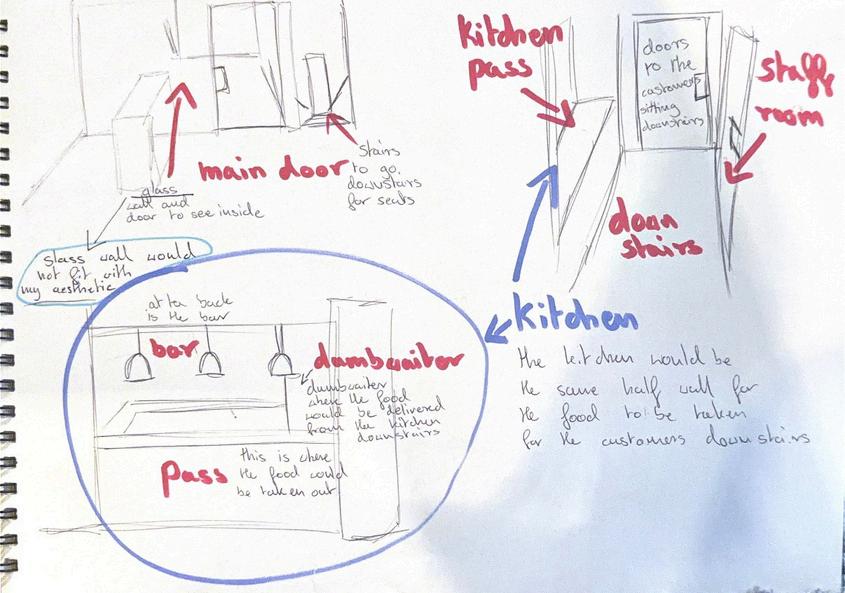 main door
stairs
to go
downstairs
for seats
glass
wall and
door to see inside
glass wall would
not fit with
my aesthetic
kitchen
pass
doors
to the
customers
sitting
downstairs
staff
room
down
stairs
at the back
is the bar
bar
dumbwaiter
dumbwaiter
where the food
would be delivered
from the kitchen
downstairs
pass
this is where
the food could
be taken out
kitchen
the kitchen would be
the same half wall for
the food to be taken
for the customers downstairs